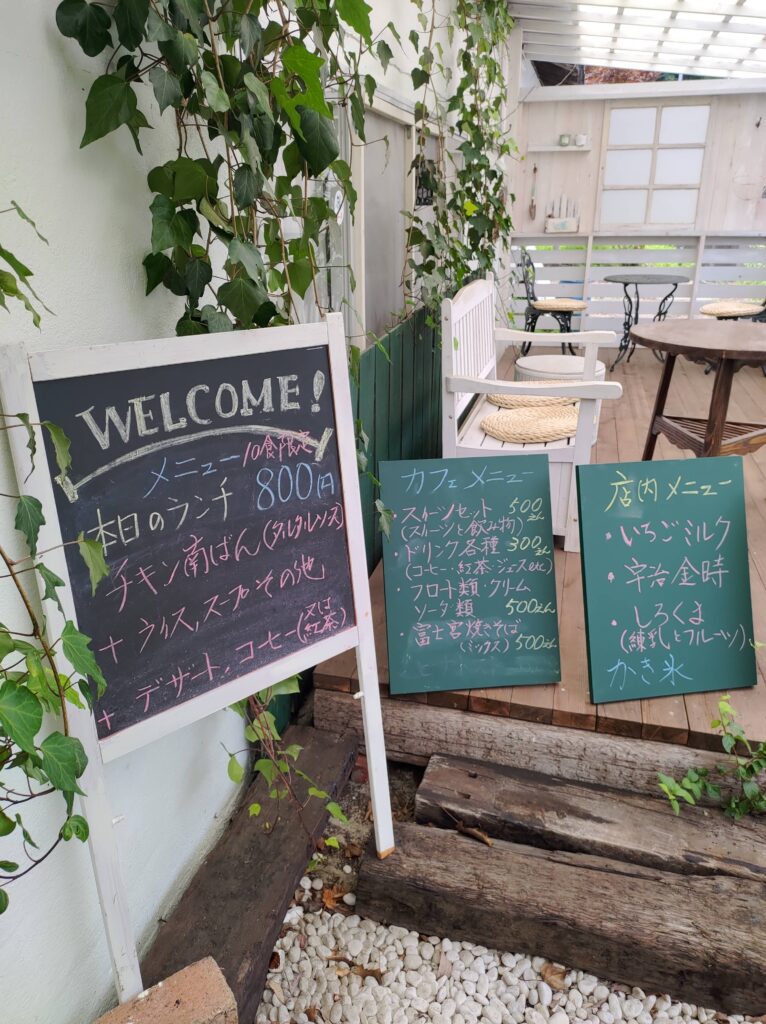 WELCOME!
メニュー 10食限定
本日のランチ 800円
チキン南ばん(タルタルソース)
+ ライス、スープ その他
+ デザート、コーヒー(又は紅茶)
カフェメニュー
・スイーツセット 500えん
(スイーツと飲み物)
・ドリンク各種 300えん
(コーヒー・紅茶・ジュースetc)
・フロート類・クリーム
ソーダ類 500えん
・富士宮焼きそば
(ミックス) 500えん
店内メニュー
・いちごミルク
・宇治金時
・しろくま
(練乳とフルーツ)
かき氷